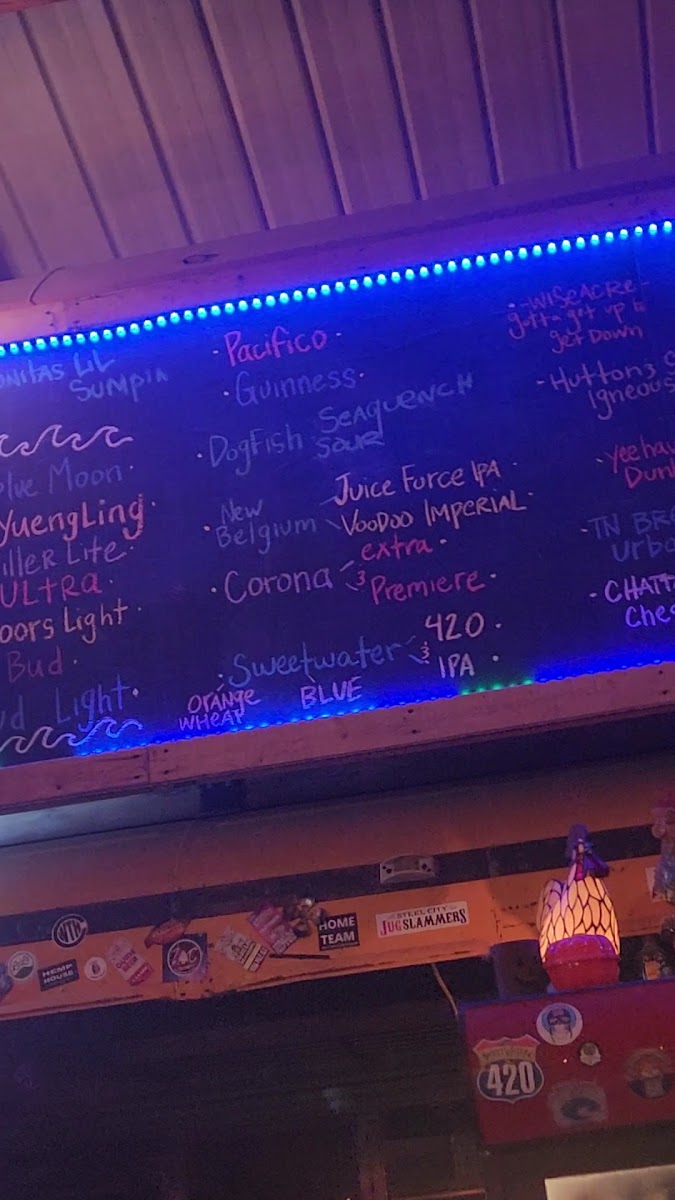 ONITAS LiL
SUMPin
Blue Moon
YUENGLiNG
iLLER LiTe
ULTRA
oors Light
Bud
ud Light
Pacifico
GUiNNESS
DOGFiSH SEAQUENCH
SOUR
New
Belgium
JUiCE FORCE IPA
VOODOO IMPERiAL
Corona
extra
Premiere
Sweetwater
420
IPA
ORANGE
WHEAT
BLUE
WiSeACRe
gotta get up to
get Down
HUTTON &
Igneous
Yeehaw
Dun
TN BR
urb
CHATT
Che
HOME
TEAM
STEEL CITY
JUGSLAMMERS
HEMP
HOUSE
420